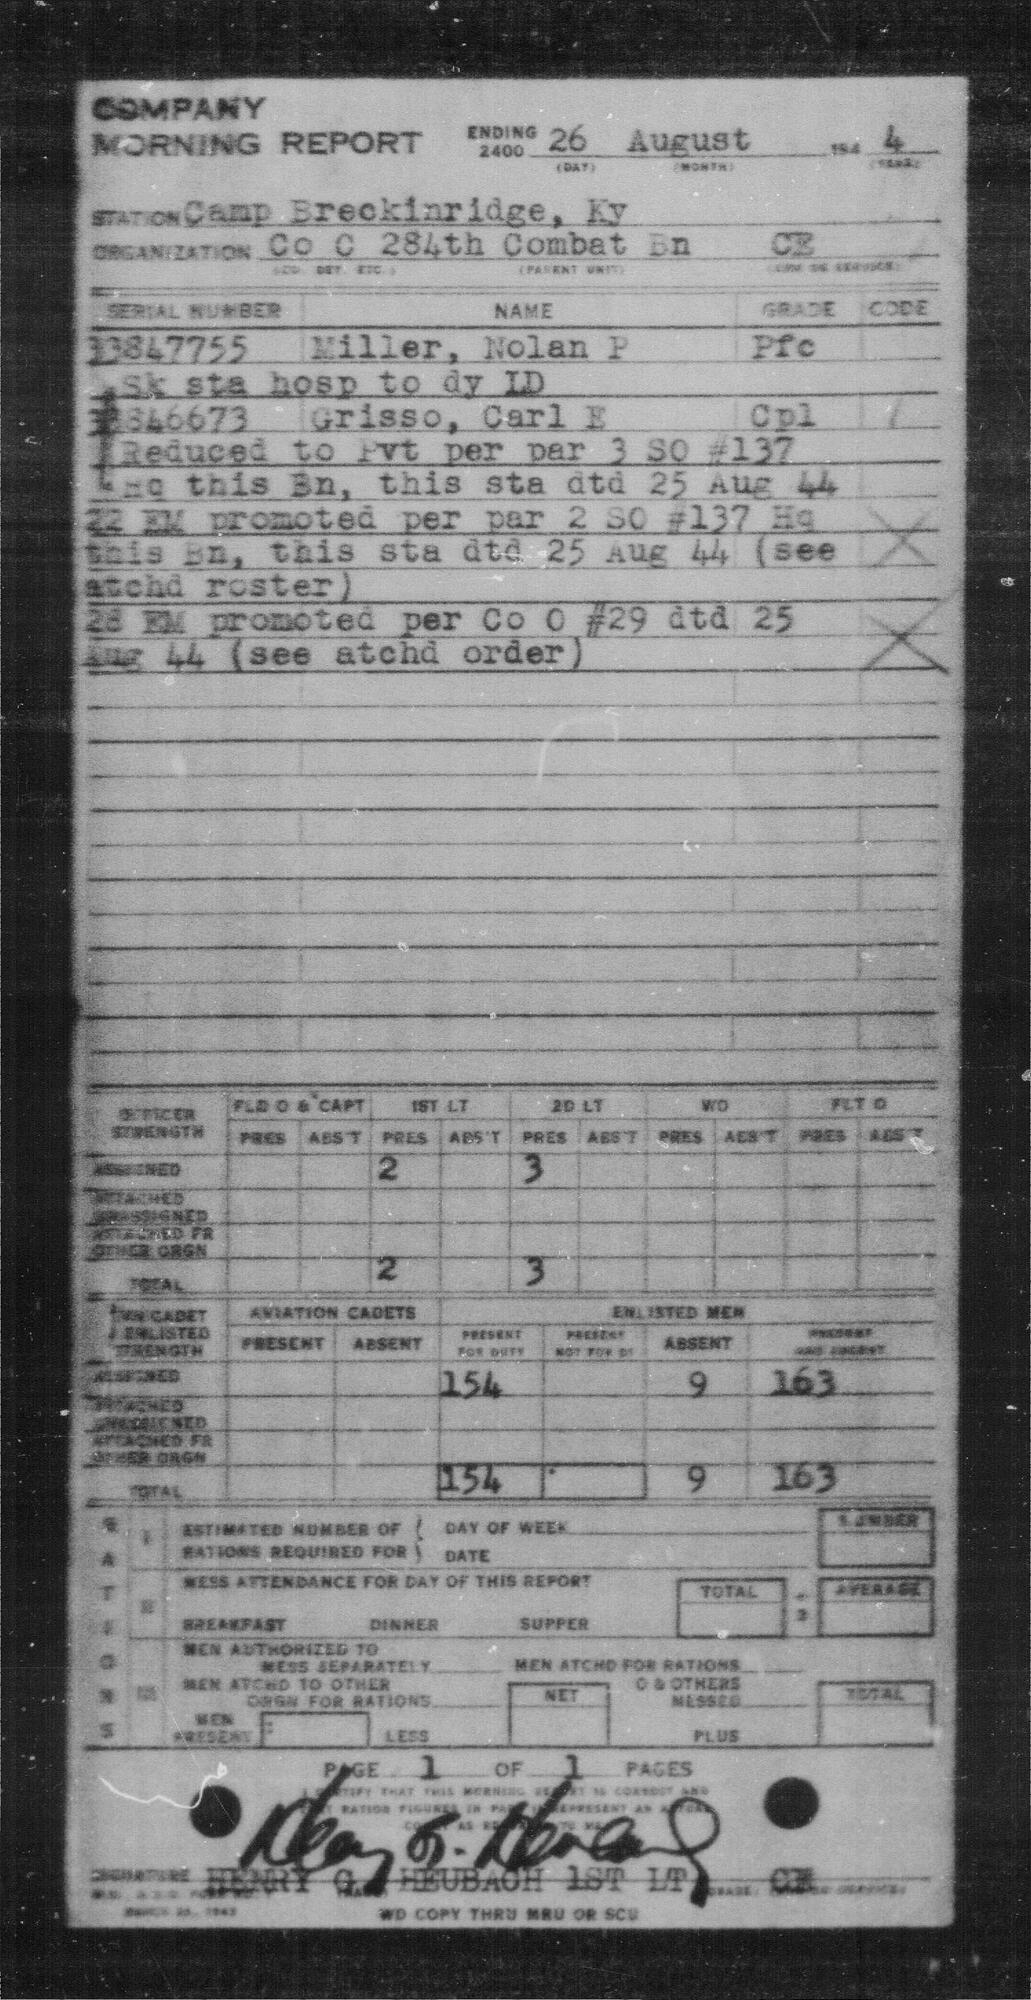 COMPANY
MORNING REPORT ENDING 2400 26 August 194 4
(DAY) (MONTH) (YEAR)
STATION Camp Breckinridge, Ky
ORGANIZATION Co C 284th Combat Bn CE
(CO. DET. ETC.) (PARENT UNIT) (ARM OR SERVICE)
SERIAL NUMBER NAME GRADE CODE
33847755 Miller, Nolan P Pfc
Sk sta hosp to dy LD
33846673 Grisso, Carl E Cpl
Reduced to Pvt per par 3 SO #137
Hq this Bn, this sta dtd 25 Aug 44
22 EM promoted per par 2 SO #137 Hq
this Bn, this sta dtd 25 Aug 44 (see
atchd roster)
28 EM promoted per Co O #29 dtd 25
Aug 44 (see atchd order)
OFFICER STRENGTH FLD O & CAPT 1ST LT 2D LT WO FLT O
PRES ABS'T PRES ABS'T PRES ABS'T PRES ABS'T PRES ABS'T
ASSIGNED 2 3
ATTACHED UNASSIGNED
ATTACHED FR OTHER ORGN
TOTAL 2 3
AVN CADET & ENLISTED STRENGTH AVIATION CADETS ENLISTED MEN
PRESENT ABSENT PRESENT FOR DUTY PRESENT NOT FOR DY ABSENT PRESENT AND ABSENT
ASSIGNED 154 9 163
ATTACHED UNASSIGNED
ATTACHED FR OTHER ORGN
TOTAL 154 9 163
RATIONS
I ESTIMATED NUMBER OF RATIONS REQUIRED FOR { DAY OF WEEK DATE NUMBER
II MESS ATTENDANCE FOR DAY OF THIS REPORT TOTAL ÷ 3 AVERAGE
BREAKFAST DINNER SUPPER
III MEN AUTHORIZED TO MESS SEPARATELY MEN ATCHD FOR RATIONS
MEN ATCHD TO OTHER ORGN FOR RATIONS NET O & OTHERS MESSED TOTAL
MEN PRESENT LESS PLUS
PAGE 1 OF 1 PAGES
I CERTIFY THAT THIS MORNING REPORT IS CORRECT AND
THAT RATION FIGURES IN PART II REPRESENT AN ACTUAL
Henry G. Heubach
SIGNATURE HENRY G. HEUBACH 1ST LT CE
MARCH 25, 1943
WD COPY THRU MRU OR SCU